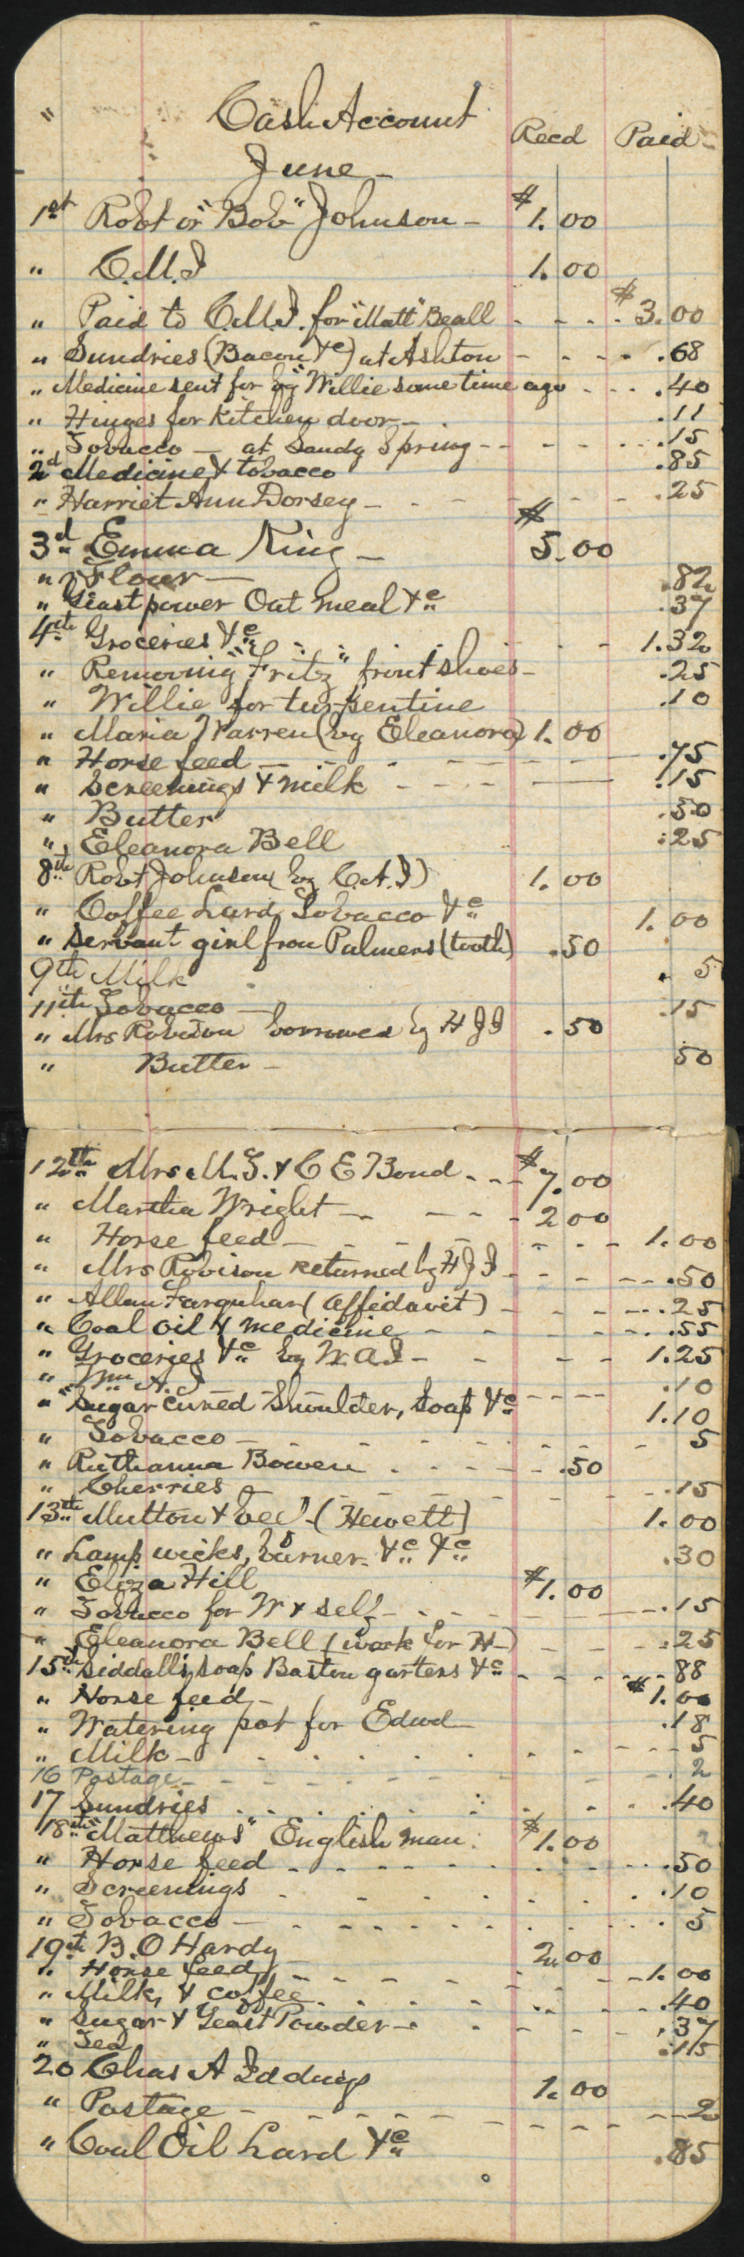 " Cash Account Recd Paid
June -
1st Robt or "Bob" Johnson - $1.00
" C.M.I 1.00
" Paid to C.M.I. for "Matt" Beall - - - - $3.00
" Sundries (Bacon &c) at Ashton - - - - .68
" Medicine sent for by Willie some time ago - - - .40
" Hinges for Kitchen door - .11
" Tobacco - at Sandy Spring - - - - - - .15
2d Medicine & tobacco .85
" Harriet Ann Dorsey - - - - - - - .25
3d Emma King - $5.00
" Flour - .82
" Yeast power Oat meal &c .37
4th Groceries &c - - - - - - 1.32
" Removing "Fritz" front shoes - .25
" Willie for turpentine .10
" Maria Warren (by Eleanora) 1.00
" Horse feed - - - - - - - - .75
" Screenings & milk - - - - - - .15
" Butter .50
" Eleanora Bell .25
8th Robt Johnson (by C.A.I) 1.00
" Coffee Lard, Tobacco &c 1.00
" Servant girl from Palmers (tooth) .50
9th Milk . 5
11th Tobacco - .15
" Mrs Robison borrowed by H J I .50
" Butter - 50
12th Mrs M. S. & C E Bond - - - $7.00
" Martha Wright - - - - 2 00
" Horse feed - - - - - - - - - 1.00
" Mrs Robison returned by H J I - - - - - .50
" Allan Farquhar (affidavit) - - - - - .25
" Coal oil & medicine - - - - - - - .55
" Groceries &c by W. A I - - - - 1.25
" Wm A. I - - - - - - .10
" Sugar cured Shoulder, soap &c 1.10
" Tobacco - - - - - - - - - 5
" Ruthanna Bowen - - - - - .50
" Cherries - - - - - - - - .15
13th Mutton & (Hewett) 1.00
" Lamp wicks, burner &c &c .30
" Eliza Hill $1.00
" Tobacco for W & self - - - - - - .15
" Eleanora Bell (work for H-) - - - - .25
15th Siddalls soap Baston garters &c - - - - - .88
" Horse feed - $1.00
" Watering pot for Edwd - .18
" Milk - - - - - - - - - - 5
16 Postage - - - - - - - - - . 2
17 Sundries - - - - - - - - .40
18th "Matthews" English man. $1.00
" Horse feed - - - - - - - - - .50
" Screenings - - - - - - - .10
" Tobacco - - - - - - - - - - . 5
19th B. O Hardy 2.00
" Horse feed - - - - - - - - - 1.00
" Milk, & coffee - - - - - - .40
" Sugar & Yeast Powder - - - - - .37
" Tea .15
20 Chas A Iddings 1.00
" Postage - - - - - - - - - - - - 2
" Coal Oil Lard &c .85